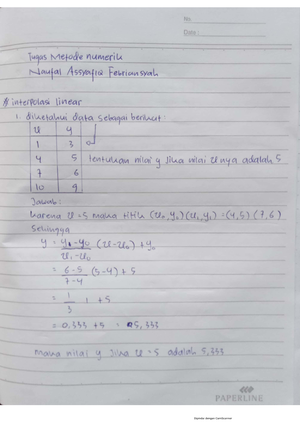 No.
Date:
Tugas Metode numerik
Naufal Assyafiq Febriansyah
# interpolasi linear
1. diketahui data sebagai berikut:
x y
1 3
4 5 tentukan nilai y jika nilai x nya adalah 5
7 6
10 9
Jawab:
karena x = 5 maka titik (x₀, y₀) (x₁, y₁) = (4,5) (7,6)
Sehingga
y = y₁-y₀ / x₁-x₀ (x-x₀) + y₀
= 6-5 / 7-4 (5-4) + 5
= 1/3 1 + 5
= 0,333 + 5 = 5,333
maka nilai y jika x = 5 adalah 5,333
PAPERLINE